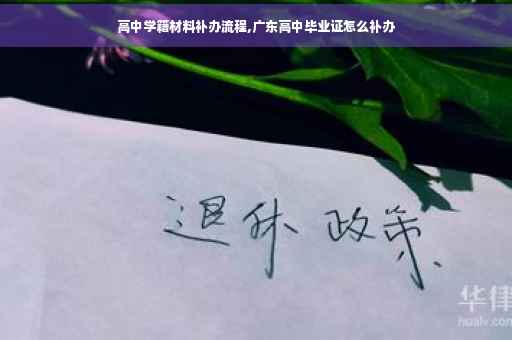 高中学籍材料补办流程,广东高中毕业证怎么补办
退休 政策
华律
hualv.com